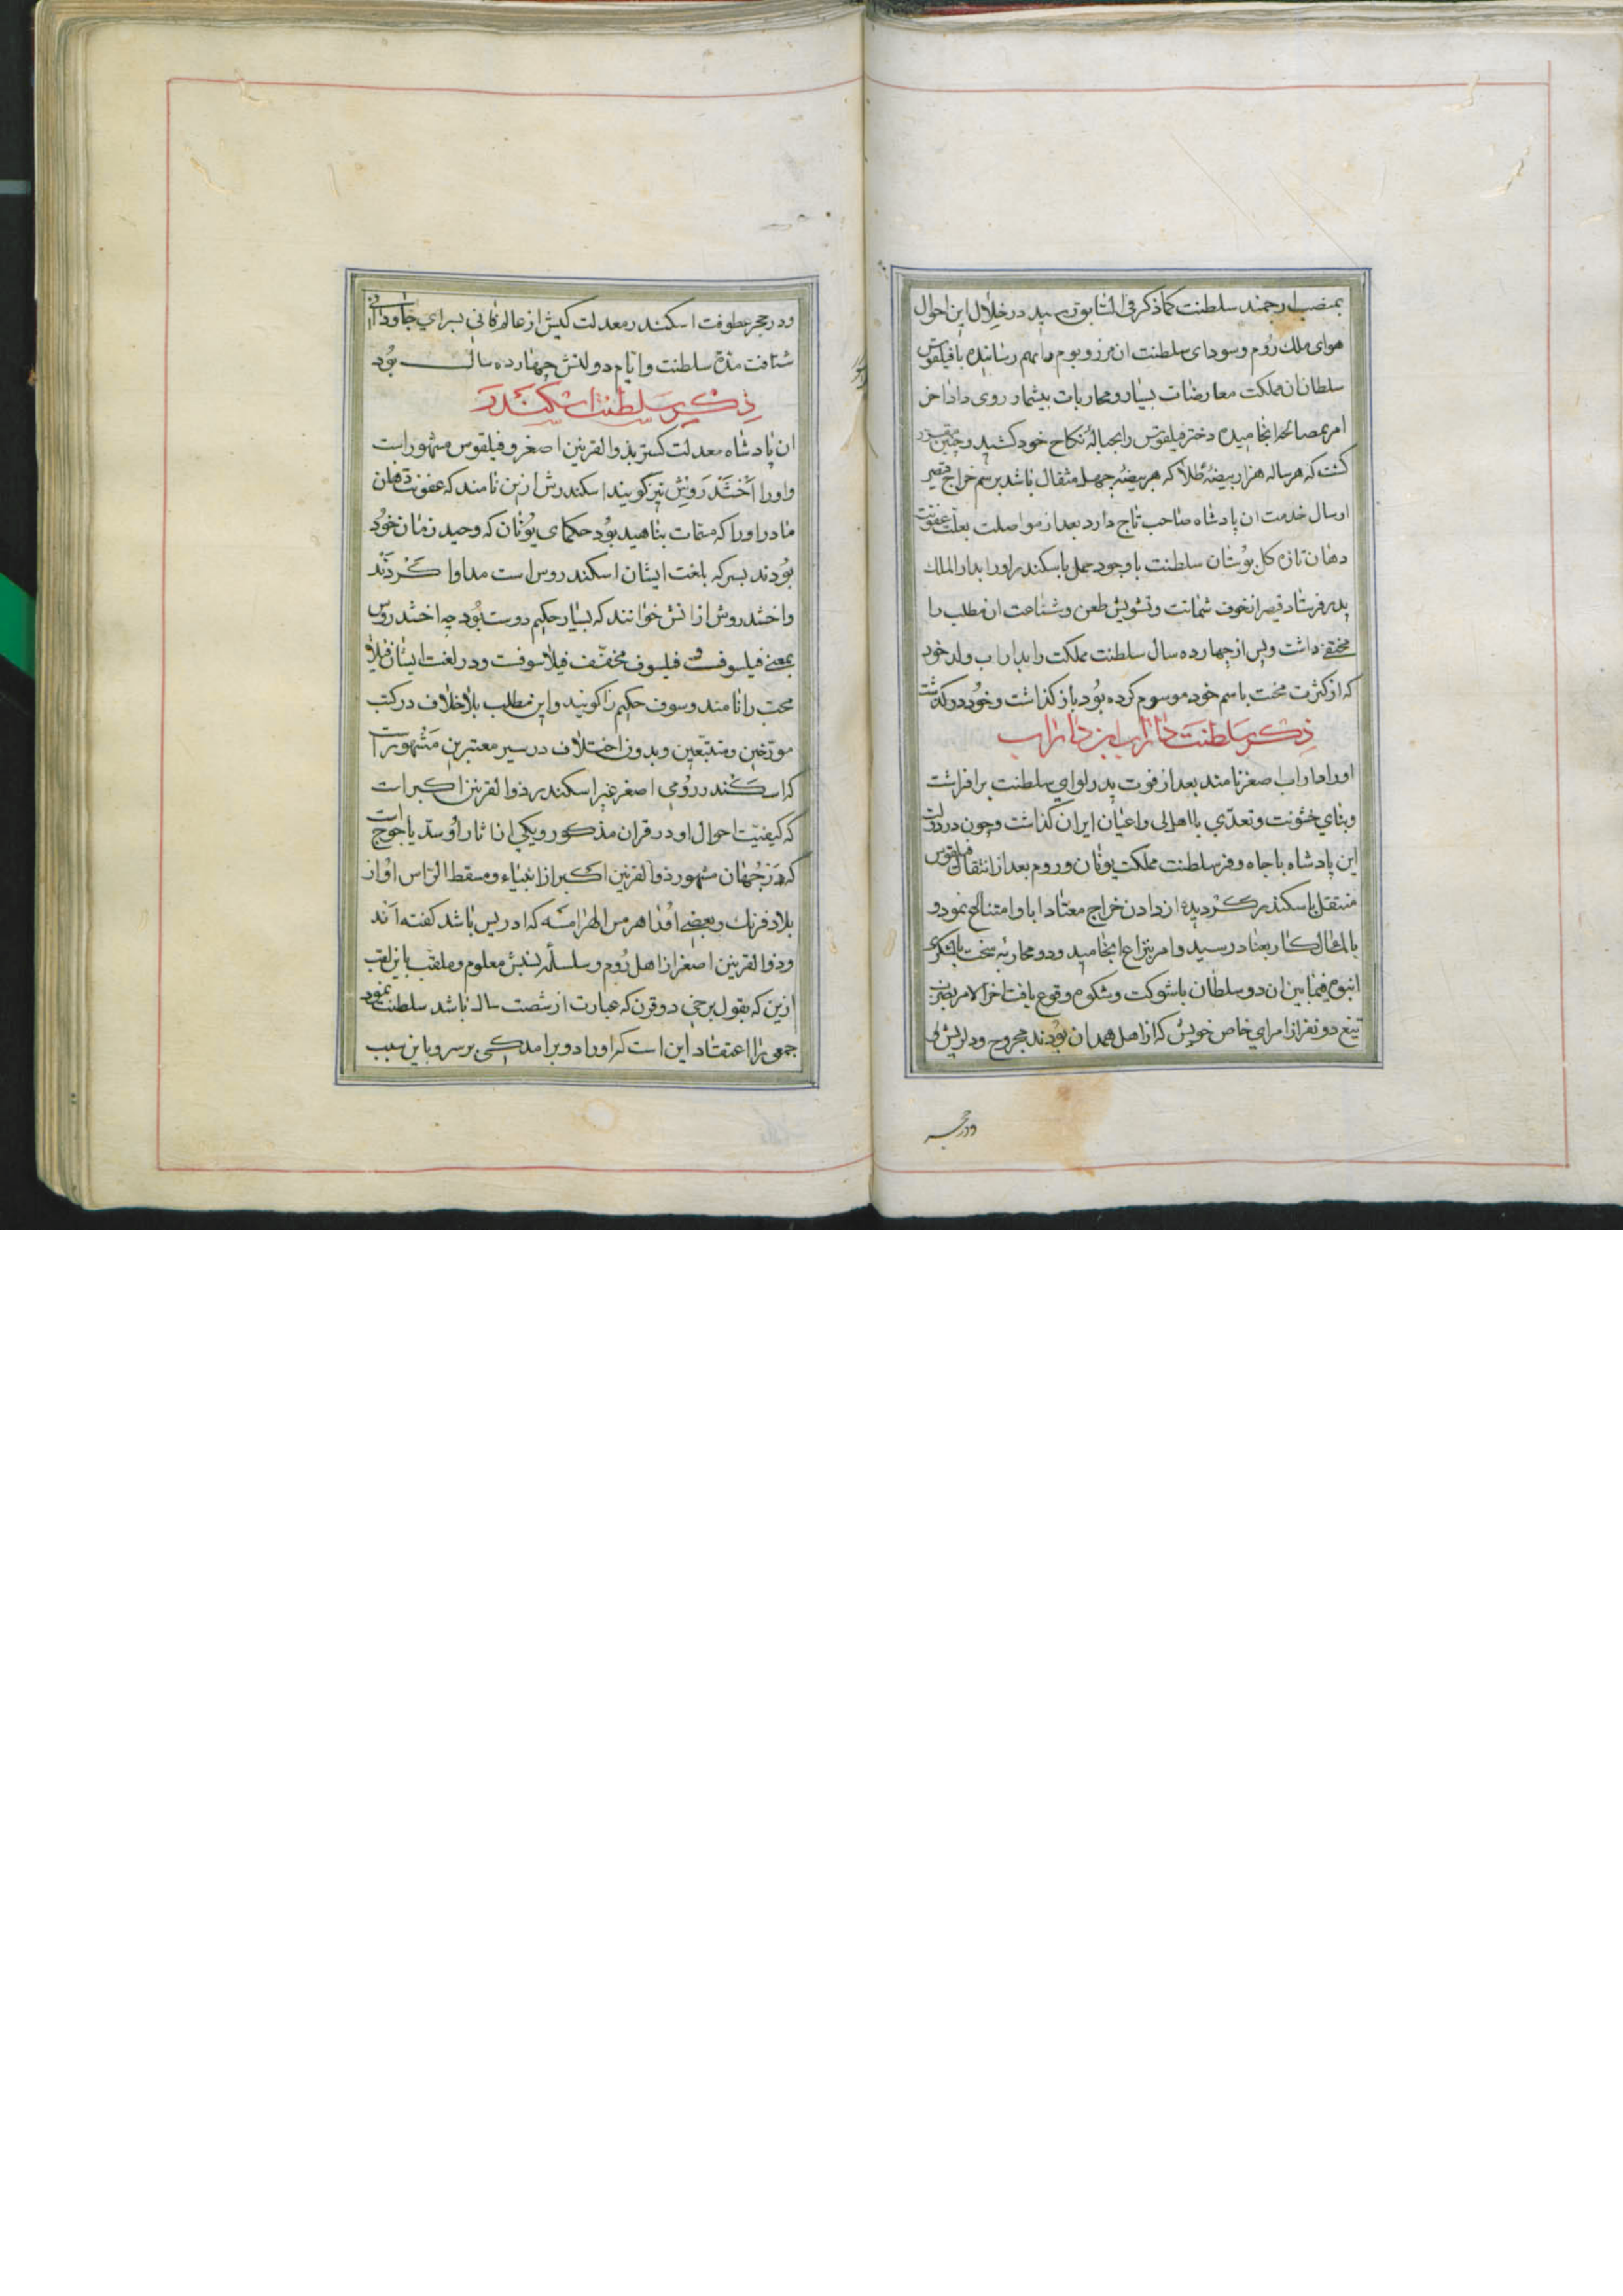 بمنصب ارجمند سلطنت کما ذکر فی السّابق رسید در خلال این احوال
هوای ملک روم و سودای سلطنت ان مرز و بوم بهم رسانیده با فیلقوس
سلطان ان مملکت معارضات بسیار و محاربات بیشمار روی داد اخر
امر بمصالحه انجامیده دختر فیلقوس را بحباله نکاح خود کشید و چنین مقرر
کشت که هر ساله هزار بیضه طلا که هر بیضه چهل مثقال باشد برسم خراج قیصر
ارسال خدمت ان پادشاه صاحب تاج دارد بعد از مواصلت بعلت عفونت
دهان تازه کل بوستان سلطنت با وجود حمل باسکندر او را بدار الملک
پدر فرستاد قیصر از خوف شماتت و تشویش طعن و شناعت ان مطلب را
مختفی داشت و پس از چهارده سال سلطنت مملکت را بداراب ولد خود
که از کثرت محبت باسم خود موسوم کرده بود باز کذاشت و خود در کذشت
ذکر سلطنت داراب ابن داراب
او را داراب اصغر نامند بعد از فوت پدر لوای سلطنت بر افراشت
و بنای خشونت و تعدّی با اهالی و اعیان ایران کذاشت و چون در دولت
این پادشاه با جاه و فر سلطنت مملکت یونان و روم بعد از انتقال فیلقوس
منتقل باسکندر کردیده از دادن خراج معتاد ابا و امتناع نمود و
بالمال کار بعناد رسید و امر بنزاع انجامید و دو محاربه سخت با لشکری
انبوه فیما بین ان دو سلطان با شوکت و شکوه وقوع یافت اخر الامر بضرب
تیغ دو نفر از امرای خاص خویش که از اهل همدان بودند مجروح و دلریش
ودر حجر
ودر حجر عطوفت اسکندر معدلت کیش از عالم فانی بسرای جاودانی
شتافت مدة سلطنت و ایام دولتش چهارده سال بود
ذکر سلطنت اسکندر
ان پادشاه معدلت کستر بذوالقرنین اصغر و فیلقوس مشهور است
و او را اَخشَندَروش نیز کویند اسکندرش ازین نامند که عفونت دهان
مادر او را که مسمّات بناهید بود حکمای یونان که وحید زمان خود
بودند بسیر که بلغت ایشان اسکندروس است مداوا کردند
و اخشندروش از انش خوانند که بسیار حکیم دوست بود چه اخشندروس
بمعنی فیلسوفست و فیلسوف مخفّف فیلاسوفست و در لغت ایشان فیلا
محب را نامند و سوف حکیم را کویند و این مطلب بلا خلاف در کتب
مورّخین و متتبّعین و بدون اختلاف در سیر معتبرین مَشهور است
که اسکندر رومی اصغر غیر اسکندر ذوالقرنین اکبر است
که کیفیّت احوال او در قران مذکور و یکی از اثار او سدّ یاجوج است
که در جهان مشهور ذوالقرنین اکبر از انبیاء و مسقط الرّاس او از
بلاد فرنک و بعضی او را هرمس الهرامسه که ادریس باشد کفته اند
و ذوالقرنین اصغر از اهل روم و سلسله نسبش معلوم و ملقّب باین لقب
ازین که بقول برخی دو قرن که عبارت از شصت سال باشد سلطنت نمود
جمعی را اعتقاد این است که او را دو برامدکی بر سر و باین سبب